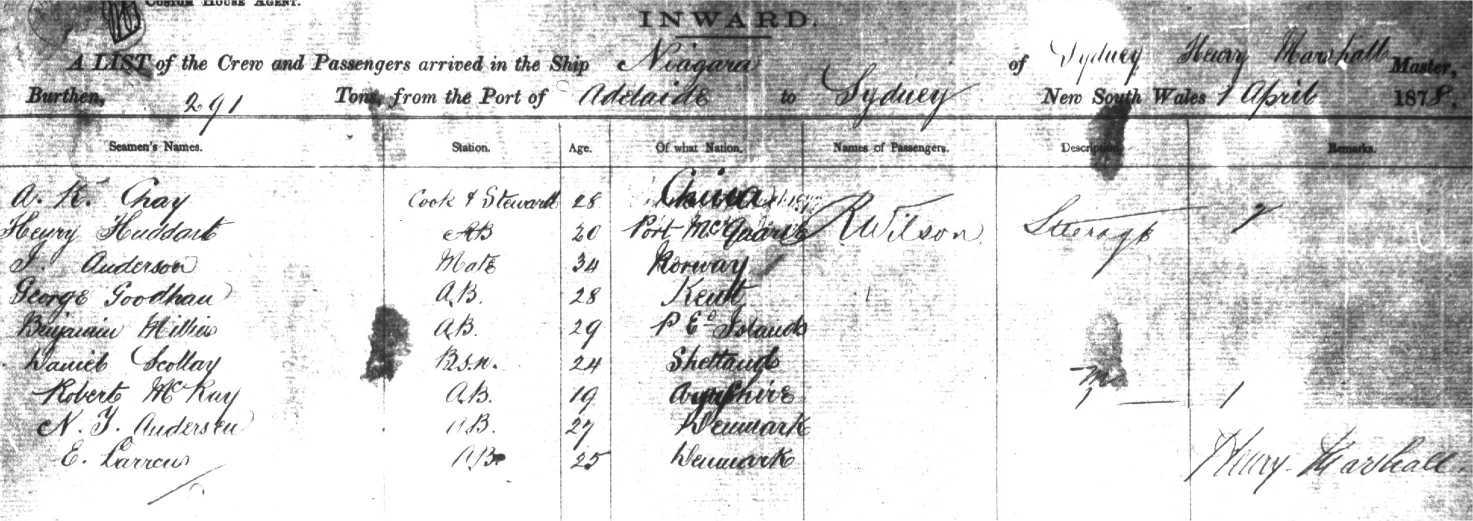 CUSTOM HOUSE AGENT.
INWARD.
A LIST of the Crew and Passengers arrived in the Ship Niagara of Sydney Henry Marshall Master,
Burthen, 291 Tons, from the Port of Adelaide to Sydney New South Wales 1 April 1878.
Seamen's Names. Station. Age. Of what Nation. Names of Passengers. Description. Remarks.
A. K. Chay Cook & Steward 28 China
Henry Huddart AB 20 Port McQuarie R Wilson Steerage
J. Anderson Mate 34 Norway
George Goodhau A.B. 28 Kent
Benjamin Millies A.B. 29 P Ed Islands
Daniel Scollay B.s.n. 24 Shetland
Robert McKay A.B. 19 Ayrshire 1
N. J. Andersen A.B. 27 Denmark
E. Larren AB. 25 Denmark Henry Marshall.